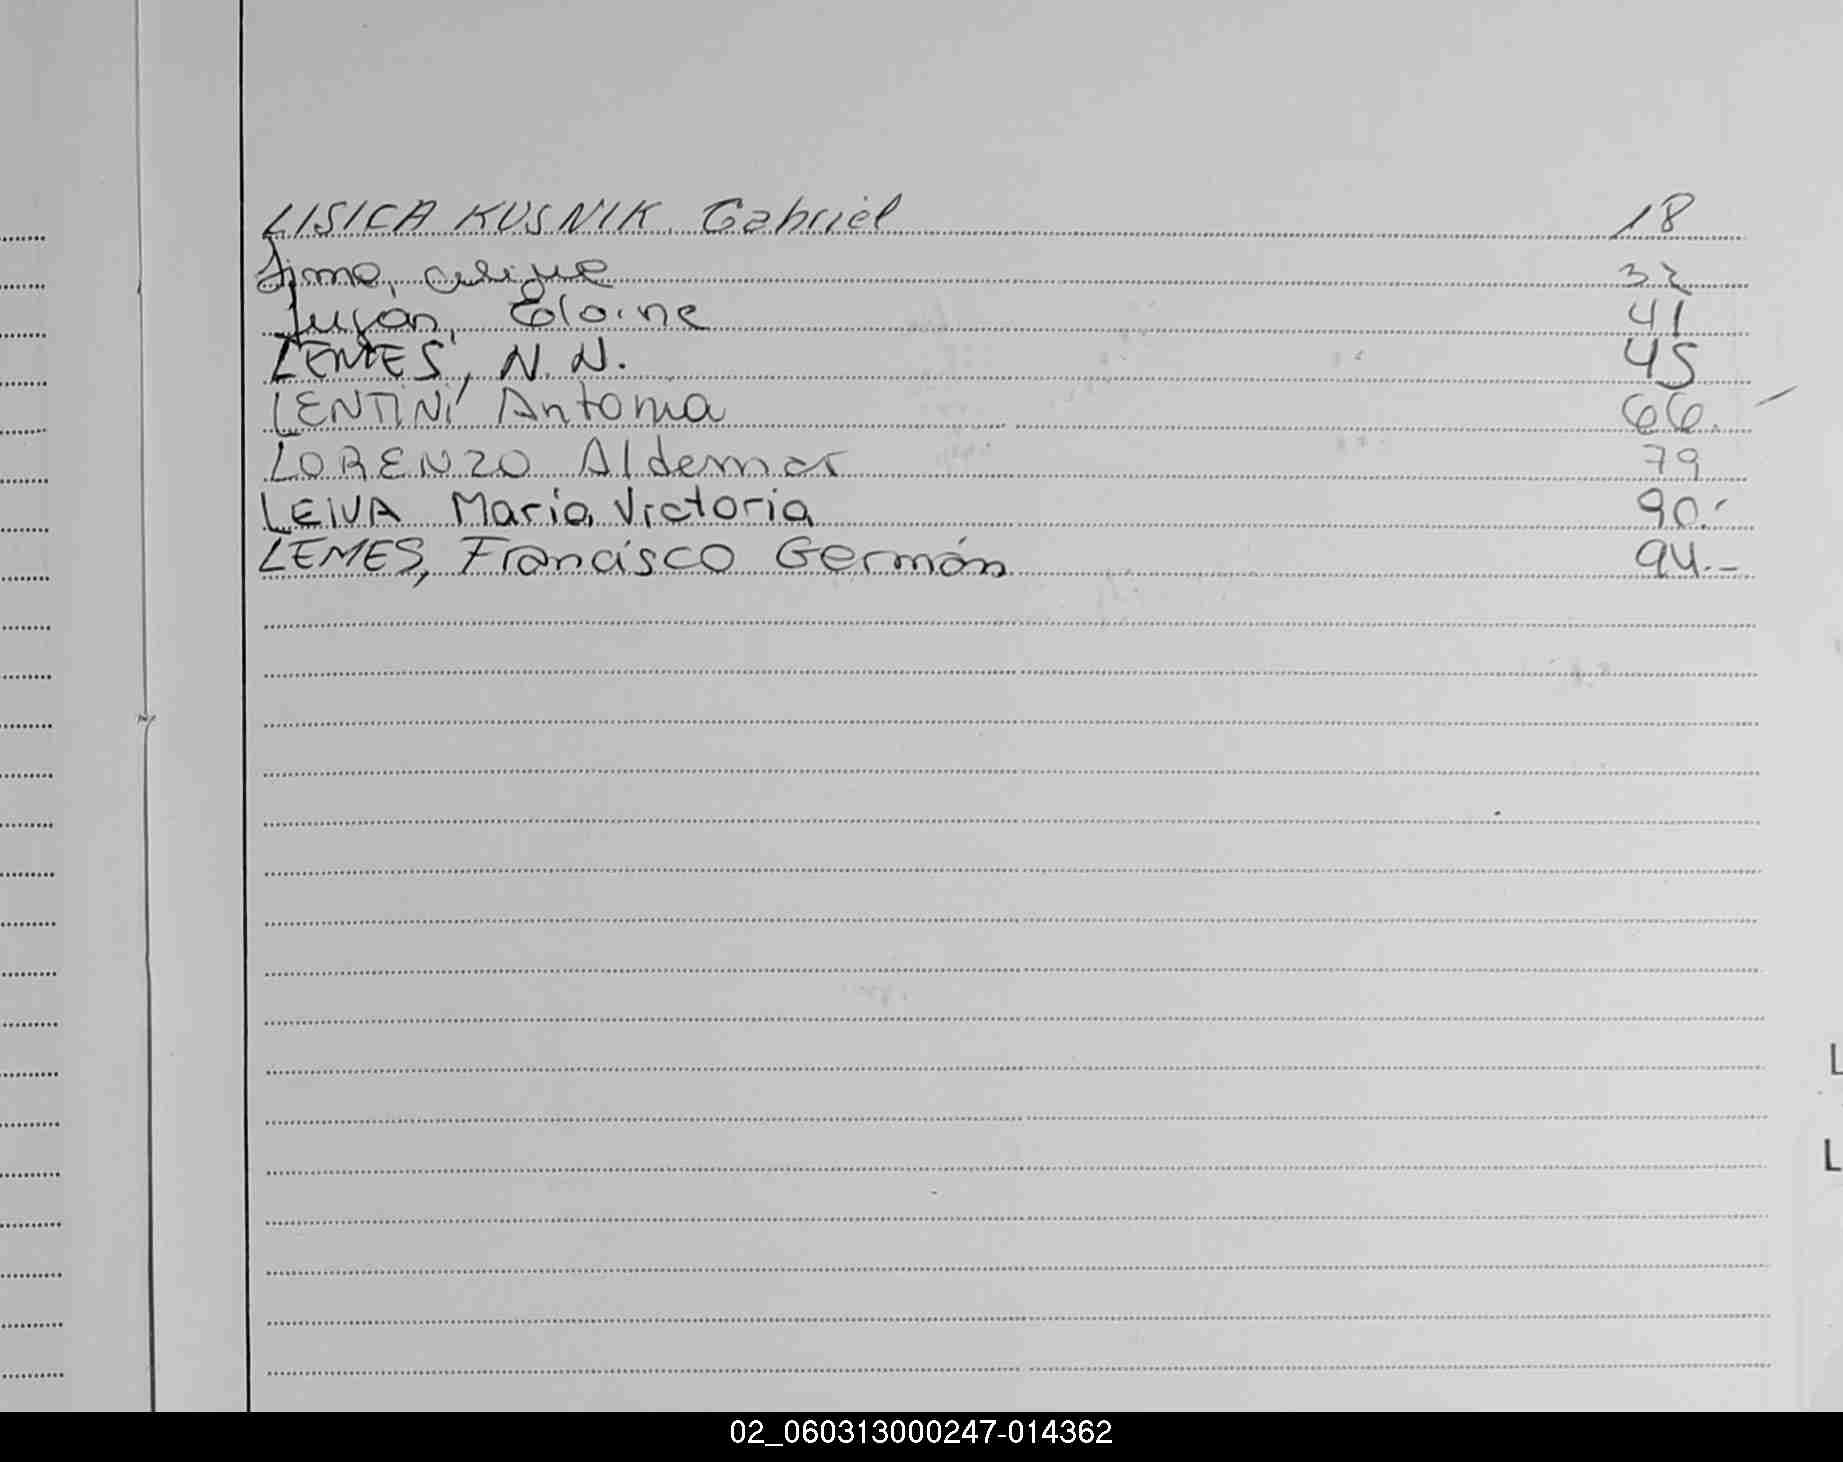 LISICA KUSNIK Gabriel 18
Lima, 32
Luján, Eloine 41
LEMES, N. N. 45
LENTINI Antonia 66.
LORENZO Aldemar 79
LEIVA María Victoria 90.-
LEMES, Francisco Germán 94.-
L
L
02_060313000247-014362